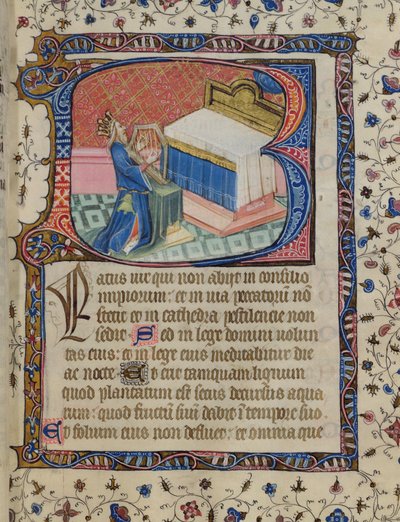 BEatus vir qui non abijt in consilio
impiorum: et in via peccatorum nō
stetit et in cathedra pestilencie non
sedit. Sed in lege domini volun
tas eius: et in lege eius meditabitur die
ac nocte. Et erit tamquam lignum
quod plantatum est secus decursus aqua
rum: quod fructū suū dabit ī tempore suo
Et folium eius non defluet: et omnia que